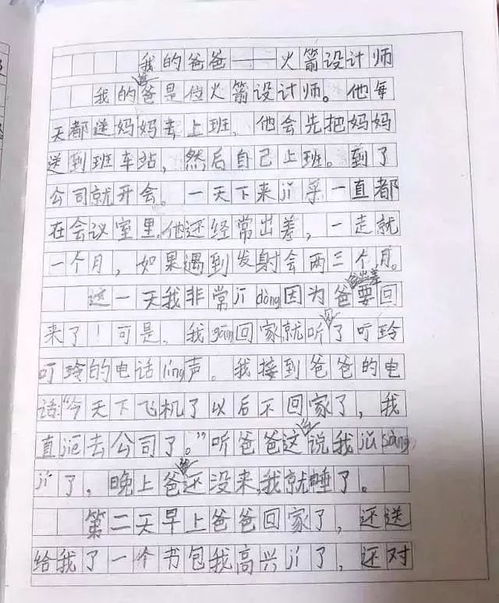 我的爸爸——火箭设计师
我的爸爸是位火箭设计师。他每
天都送妈妈去上班，他会先把妈妈
送到班车站，然后自己上班。到了
公司就开会。一天下来jī乎一直都
在会议室里。他还经常出差，一走就
一个月，如果遇到发射会两三个月。
这一天我非常jī dòng因为爸爸要回
来了！可是，我gāng回家就听了叮玲
叮玲的电话líng声。我接到爸爸的电
话:“今天下飞机了以后不回家了，我
直jiē去公司了。”听爸爸这说我jǔ sàng
jí了，晚上爸还没来，我就睡了。
第二天早上爸爸回家了，还送
给我了一个书包我高兴jí了，还对